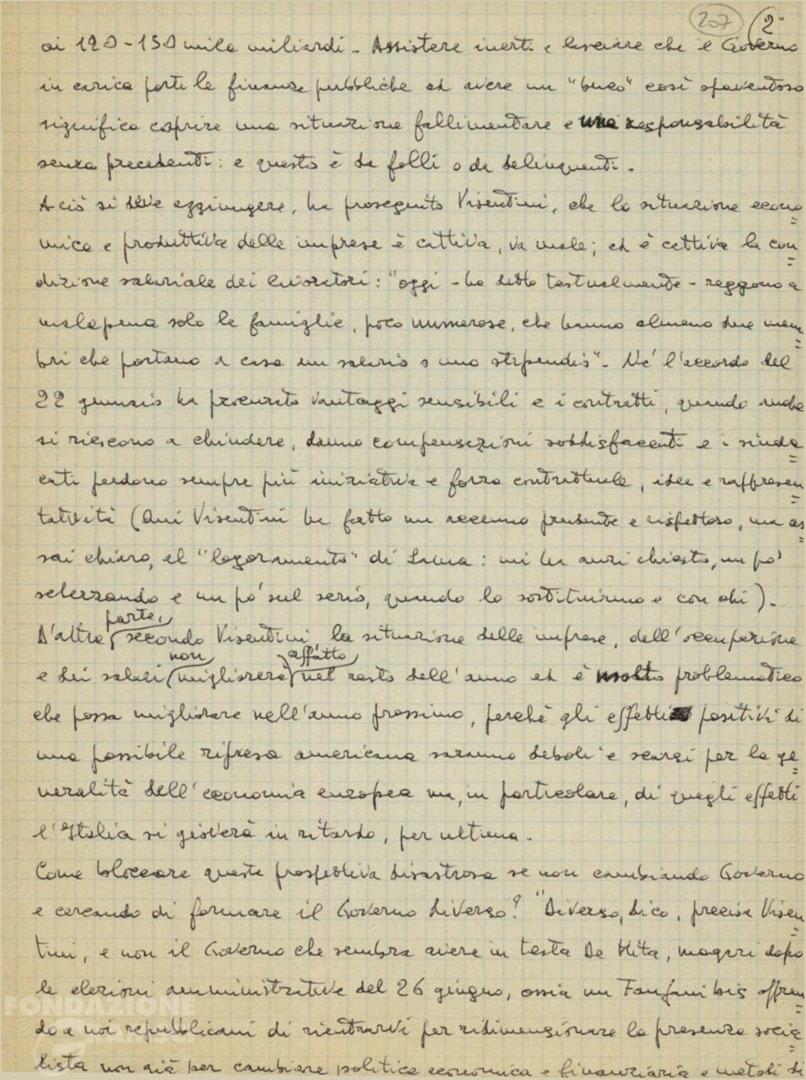 207 (2°
ai 120-150 mila miliardi - Assistere inerti e lasciare che il Governo
in carica porti le finanze pubbliche ad avere un "buco" così spaventoso
significa coprire una situazione fallimentare e una responsabilità
senza precedenti: e questo è da folli o da delinquenti.
A ciò si deve aggiungere, ha proseguito Visentini, che la situazione econo
mica e produttiva delle imprese è cattiva, va male; ed è cattiva la con
dizione salariale dei lavoratori: "oggi - ha detto testualmente - reggono a
malapena solo le famiglie, poco numerose, che hanno almeno due mem
bri che portano a casa un salario o uno stipendio". Né l'accordo del
22 gennaio ha procurato vantaggi sensibili e i contratti, quando anche
si riescono a chiudere, danno compensazioni soddisfacenti e i sinda
cati perdono sempre più iniziativa e forza contrattuale, idee e rappresen
tatività (Qui Visentini ha fatto un accenno prudente e rispettoso, ma as
sai chiaro, al "logoramento" di Lama: mi ha anzi chiesto, un po'
scherzando e un po' sul serio, quando lo sostituiremo e con chi).
D'altra parte, secondo Visentini, la situazione delle imprese, dell'occupazione
e dei salari non migliorerà affatto nel resto dell'anno ed è molto problematico
che possa migliorare nell'anno prossimo, perché gli effetti positivi di
una possibile ripresa americana saranno deboli e scarsi per la ge
neralità dell'economia europea ma, in particolare, di quegli effetti
l'Italia si gioverà in ritardo, per ultima.
Come bloccare questa prospettiva disastrosa se non cambiando Governo
e cercando di formare il Governo diverso? "Diverso, dico, precisa Visen
tini, e non il Governo che sembra avere in testa De Mita, magari dopo
le elezioni amministrative del 26 giugno, ossia un Fanfani bis offren
do a noi repubblicani di rientrarvi per ridimensionare la presenza socia
lista non già per cambiare politica economica e finanziaria e metodi di
FONDAZIONE